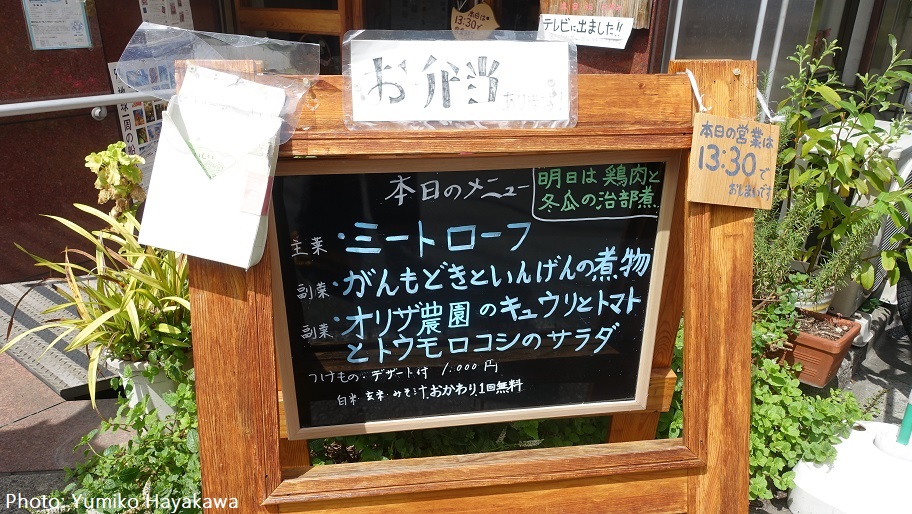 テレビに出ました!!
お弁当
本日の営業は
13:30で
おしまいです
本日のメニュー
明日は鶏肉と
冬瓜の治部煮
主菜・ミートローフ
副菜・がんもどきといんげんの煮物
副菜・オリザ農園のキュウリとトマト
とトウモロコシのサラダ
つけもの・デザート付 1.000円
白米・玄米・みそ汁おかわり1回無料
Photo: Yumiko Hayakawa